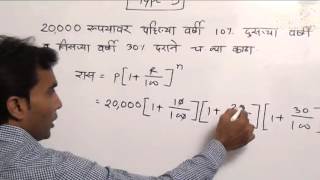 20,000 रूपयावर पहिल्या वर्षी 10% दुसऱ्या वर्षी
व तीसऱ्या वर्षी 30% दराने च व्या काढा.
रास = P[1 + R/100]^n
= 20,000[1 + 10/100][1 + 20/100][1 + 30/100]